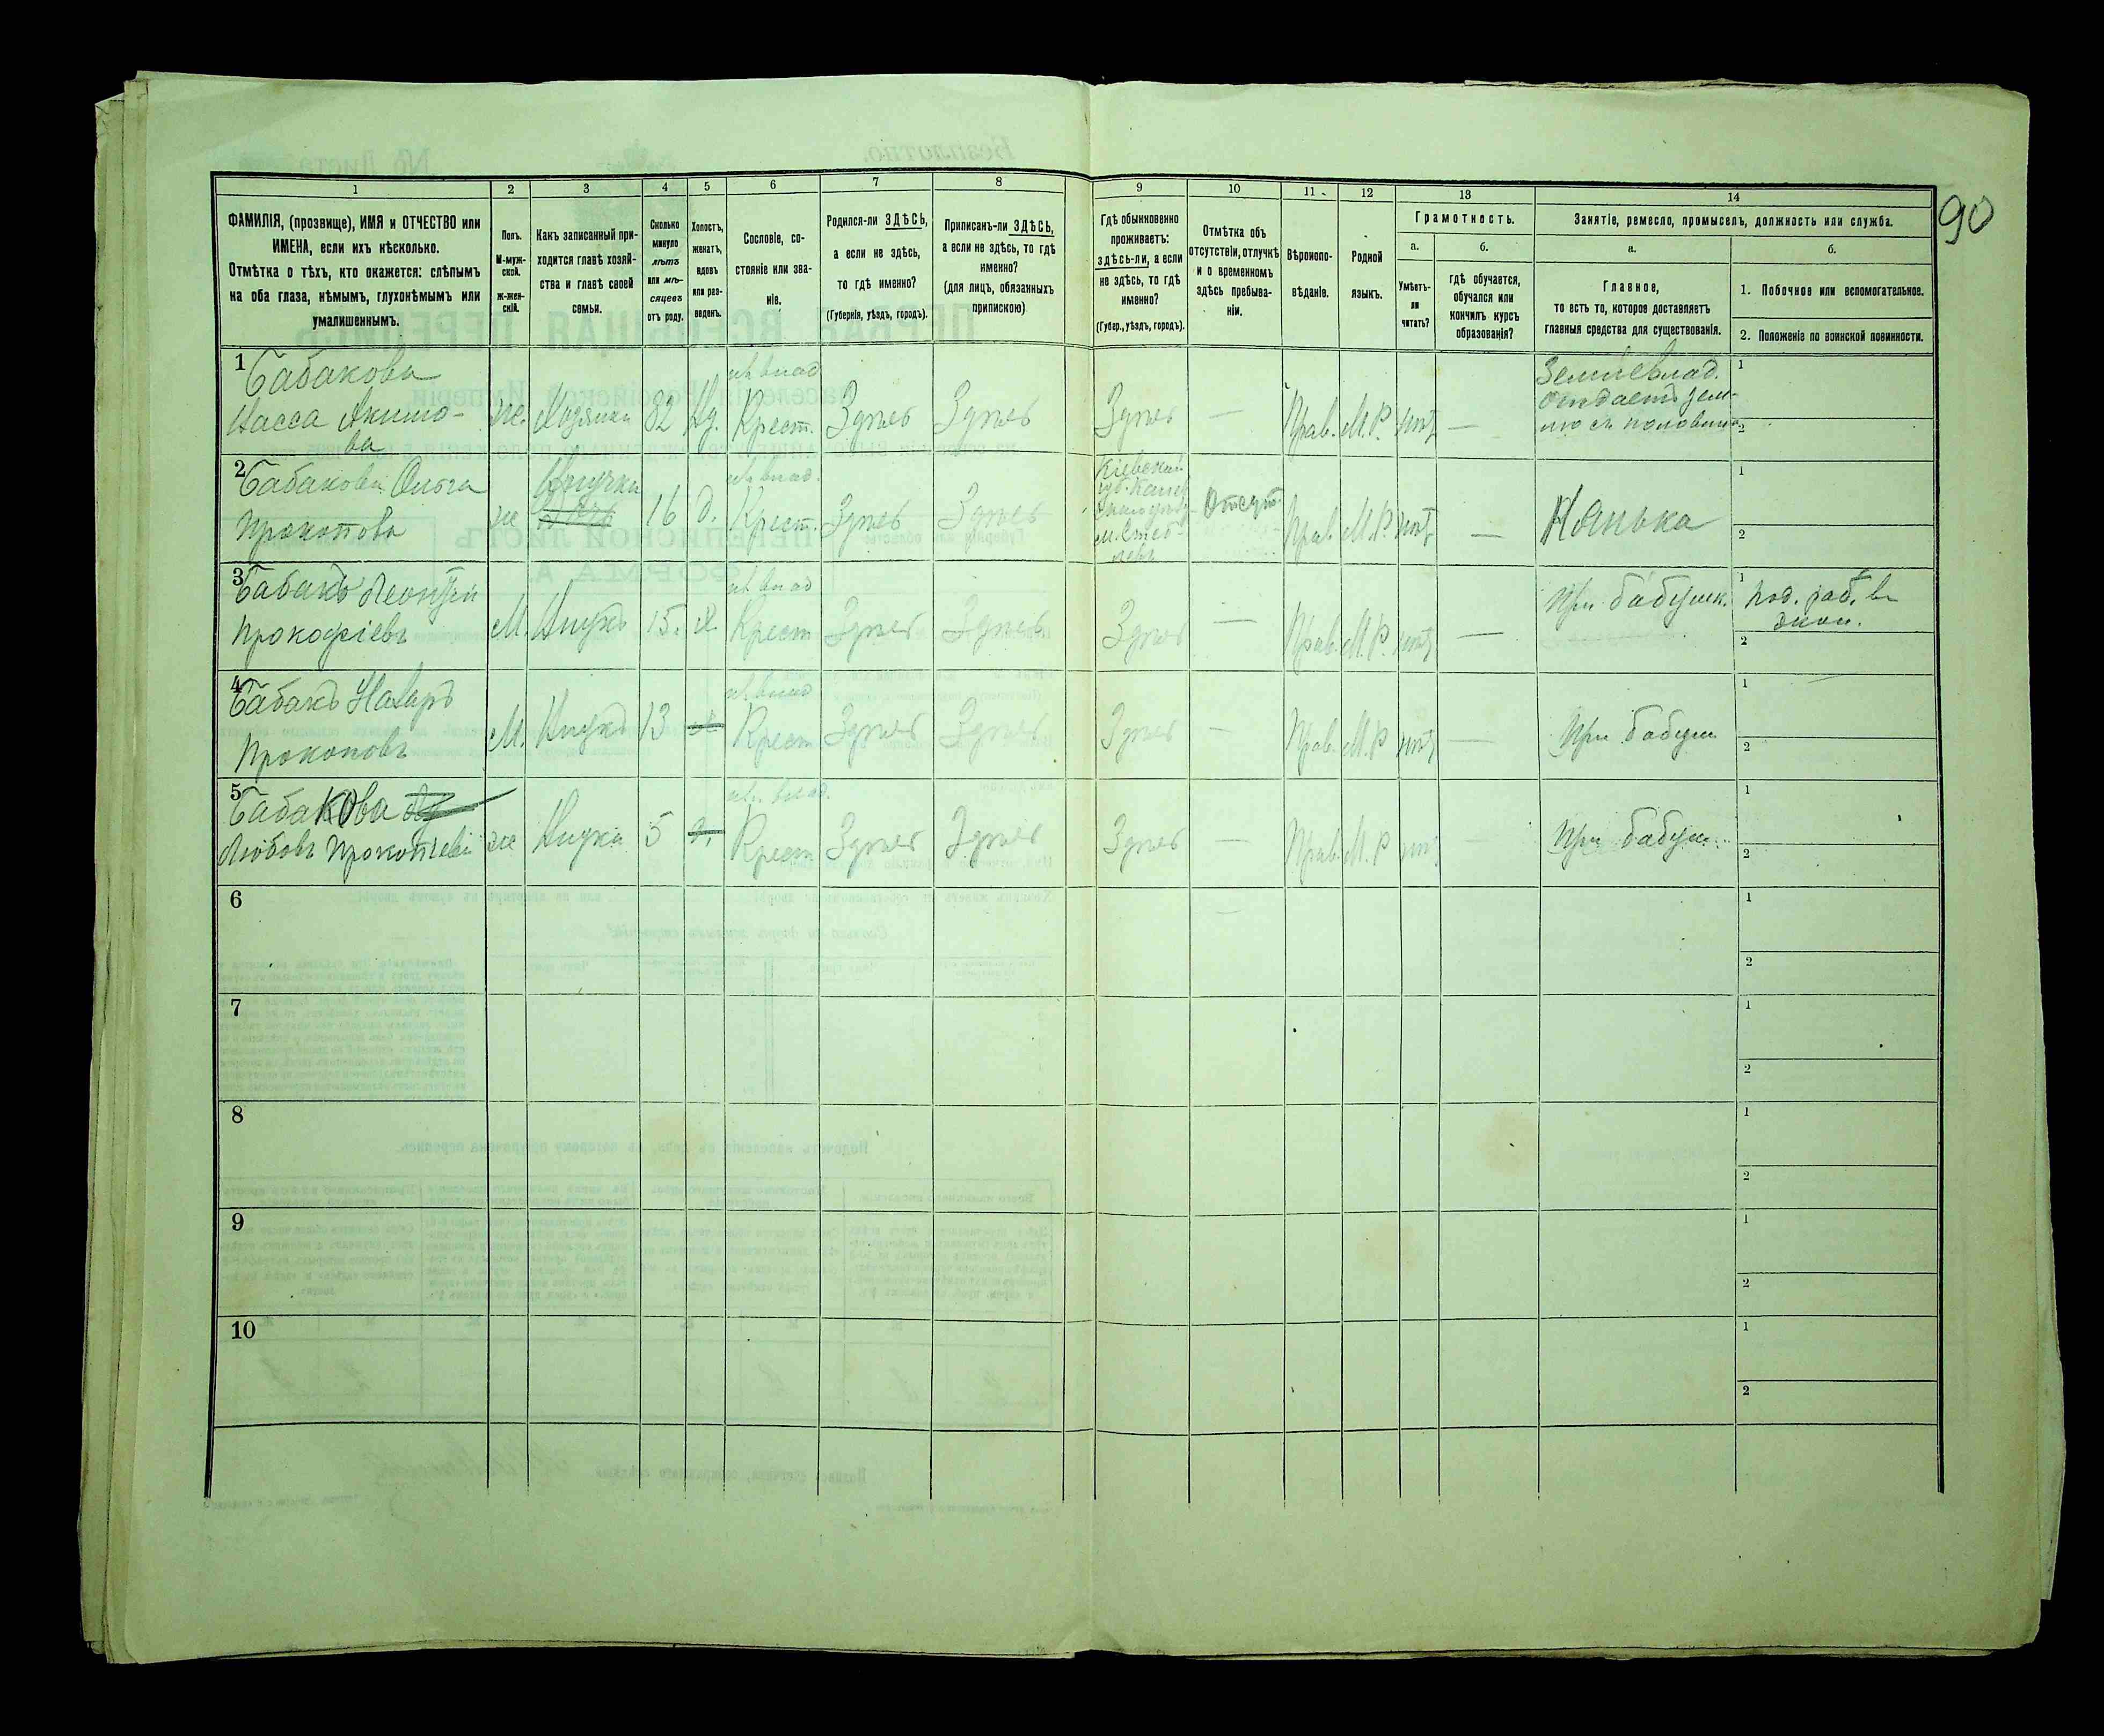 90
1
2
3
4
5
6
7
8
9
10
11
12
13
14
ФАМИЛІЯ, (прозвище), ИМЯ и ОТЧЕСТВО или
ИМЕНА, если ихъ нѣсколько.
Отмѣтка о тѣхъ, кто окажется: слѣпымъ
на оба глаза, нѣмымъ, глухонѣмымъ или
умалишеннымъ.
Полъ.
М-муж-
ской.
ж-жен-
скій.
Какъ записанный при-
ходится главѣ хозяй-
ства и главѣ своей
семьи.
Сколько
минуло
лѣтъ
или мѣ-
сяцевъ
отъ роду.
Холостъ,
женатъ,
вдовъ
или раз-
веденъ.
Сословіе, со-
стояніе или зва-
ніе.
Родился-ли ЗДѢСЬ,
а если не здѣсь,
то гдѣ именно?
(Губернія, уѣздъ, городъ).
Приписанъ-ли ЗДѢСЬ,
а если не здѣсь, то гдѣ
именно?
(для лицъ, обязанныхъ
припискою)
Гдѣ обыкновенно
проживаетъ:
здѣсь-ли, а если
не здѣсь, то гдѣ
именно?
(Губер., уѣздъ, городъ).
Отмѣтка объ
отсутствіи, отлучкѣ
и о временномъ
здѣсь пребыва-
ніи.
Вѣроиспо-
вѣданіе.
Родной
языкъ.
Грамотность.
а.
Умѣетъ-
ли
читать?
б.
гдѣ обучается,
обучался или
кончилъ курсъ
образованія?
Занятіе, ремесло, промыселъ, должность или служба.
а.
Главное,
то есть то, которое доставляетъ
главныя средства для существованія.
б.
1. Побочное или вспомогательное.
2. Положеніе по воинской повинности.
1
Бабакова
Васса Акимо-
ва
же. Хозяйка 82 Вд.
Крест. Здѣсь Здѣсь Здѣсь — Прав. М.Р. нѣт —
Землевлад.
отдаетъ зем-
лю съ половины
1
2
2
Бабакова Ольга
Прокопова
же Внучка 16 д.
Крест. Здѣсь Здѣсь
Кіевской
губ. Канев
скаго уѣзд
м. Стеб-
левъ
Отсут. Прав. М.Р. нѣт — Нянька
1
2
3
Бабакъ Леонтій
Прокофіевъ
М. Внукъ 15. х.
Крест Здѣсь Здѣсь Здѣсь — Прав. М.Р. нѣт —
При бабушк.
1
Под. раб. в
экон.
2
4
Бабакъ Назаръ
Прокоповъ
М. Внукъ 13
Крест Здѣсь Здѣсь Здѣсь — Прав. М.Р нѣт —
При бабуш
1
2
5
Бабакова
Любовь Прокопіева
же Внука 5
Крест Здѣсь Здѣсь Здѣсь — Прав. М.Р нѣт —
При бабуш.
1
2
6
1
2
7
1
2
8
1
2
9
1
2
10
1
2